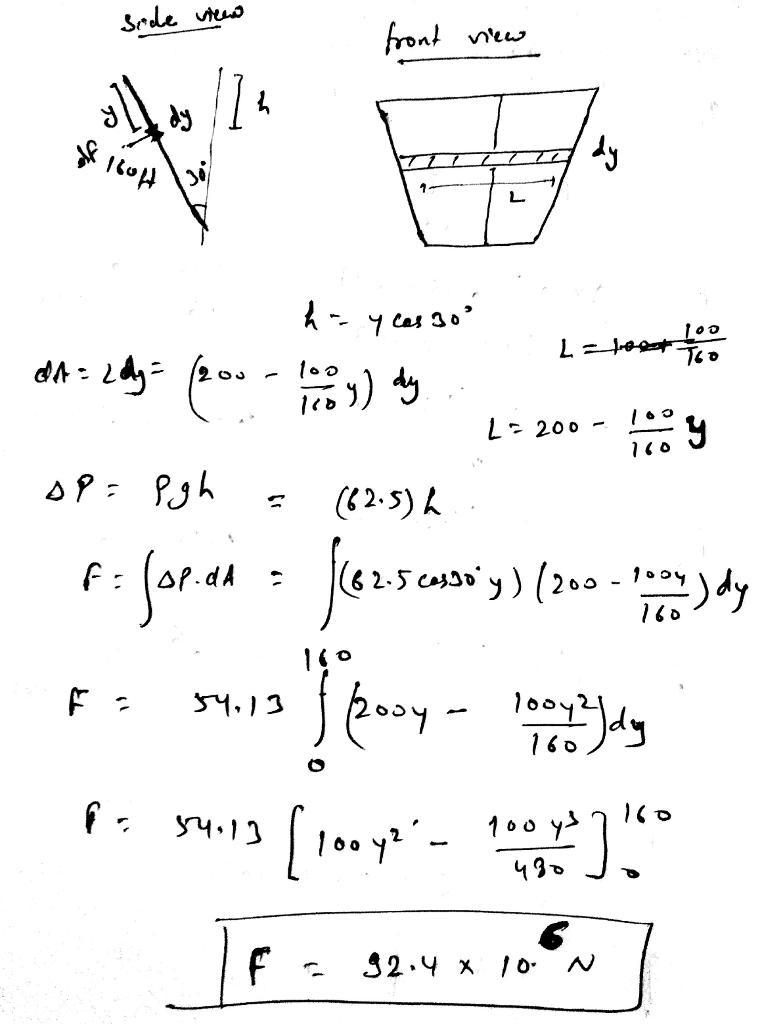 side view
front view
y dy h
dF 160ft 30°
dy
L
h = y cos 30°
L = 100/160
dA = Ldy = (200 - 100/160 y) dy
L = 200 - 100/160 y
ΔP = ρgh = (62.5) h
F = ∫ΔP.dA = ∫(62.5 cos30° y) (200 - 100y/160) dy
F = 54.13 ∫₀¹⁶⁰ (200y - 100y²/160) dy
F = 54.13 [100y² - 100y³/480]₀¹⁶⁰
F = 92.4 x 10⁶ N